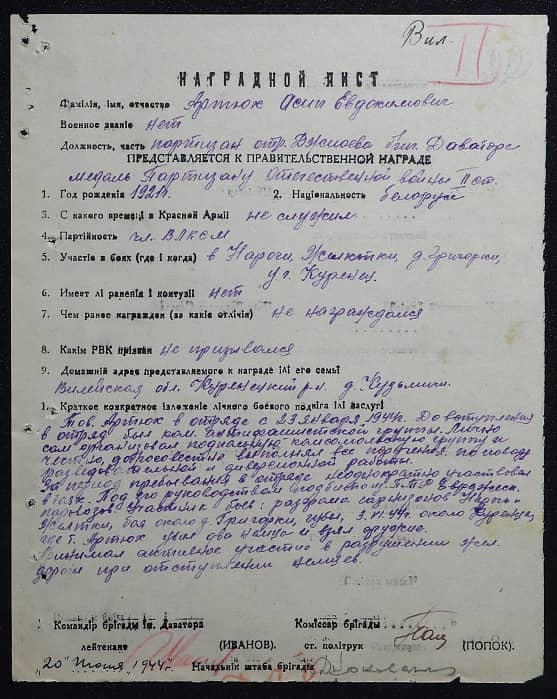 Вил.
II
НАГРАДНОЙ ЛИСТ
Фамілія, імя, отчество Артюк Асип Евдокимович
Военное званіе нет
Должность, часть партизан отр. Джиоева бриг. Даватора
ПРЕДСТАВЛЯЕТСЯ К ПРАВИТЕЛЬСТВЕННОЙ НАГРАДЕ
медаль Партизану Отечественной войны II ст.
1. Год рожденія 1921г. 2. Національность белорус
3. С какого времені в Красной Армії не служил
4. Партійность чл. ВЛКСМ
5. Участіе в боях (где і когда) в Нарочи, Жилютки, д. Григорки,
у г. Куренец
6. Имеет лі раненія і контузії нет
7. Чем ранее награжден (зо какіе отлічія) не награждался
8. Какім РВК прізван не призывался
9. Домашній адрес представляемого к награде ілі его семьі
Вилейская обл. Куренецкий р-н д. Кузьмичи
1. Краткое конкретное ізложеніе лічного боевого подвіга ілі заслугі
Тов. Артюк в отряде с 23 января 1944г. До вступления
в отряд был ком. антифашистской группы. Лично
сам организовал подпольную комсомольскую группу и
честно, добросовестно выполнял все поручения, по поводу
разведывательной и диверсионной работы.
За период пребывания в отряде неоднократно участвовал
в боях. Под его руководством
паровозов. Участник боев: разгрома гарнизонов Нарочь
бои около д. Григорки, 44г. около Куренец,
где т. Артюк убил два немца и взял оружие.
Принимал активное участие в разрушении жел.
дороги при отступлении немцев.
Командір брігады ім. Даватора Комиссар брігады
лейтенант (ИВАНОВ) ст. политрук (ПОПОК).
"20" июня 1944 г. Начальній штаба брігады